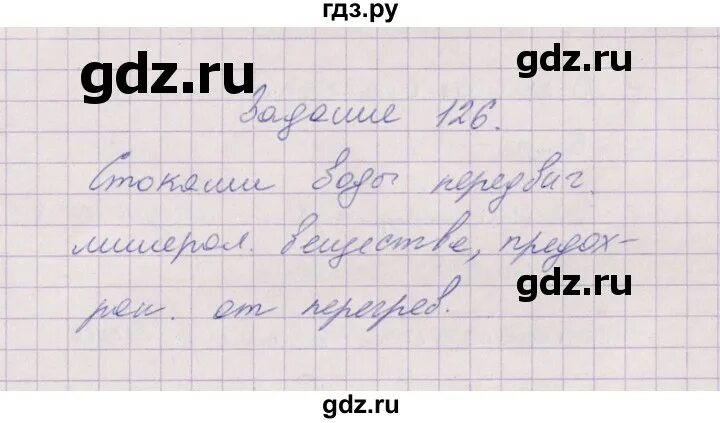 гдз.ру
gdz.ru
gdz.ru
Задание 126.
Стоками воды передвиг.
минерал. вещества, предох-
gdz.ru
ран. от перегрев.
gdz.ru